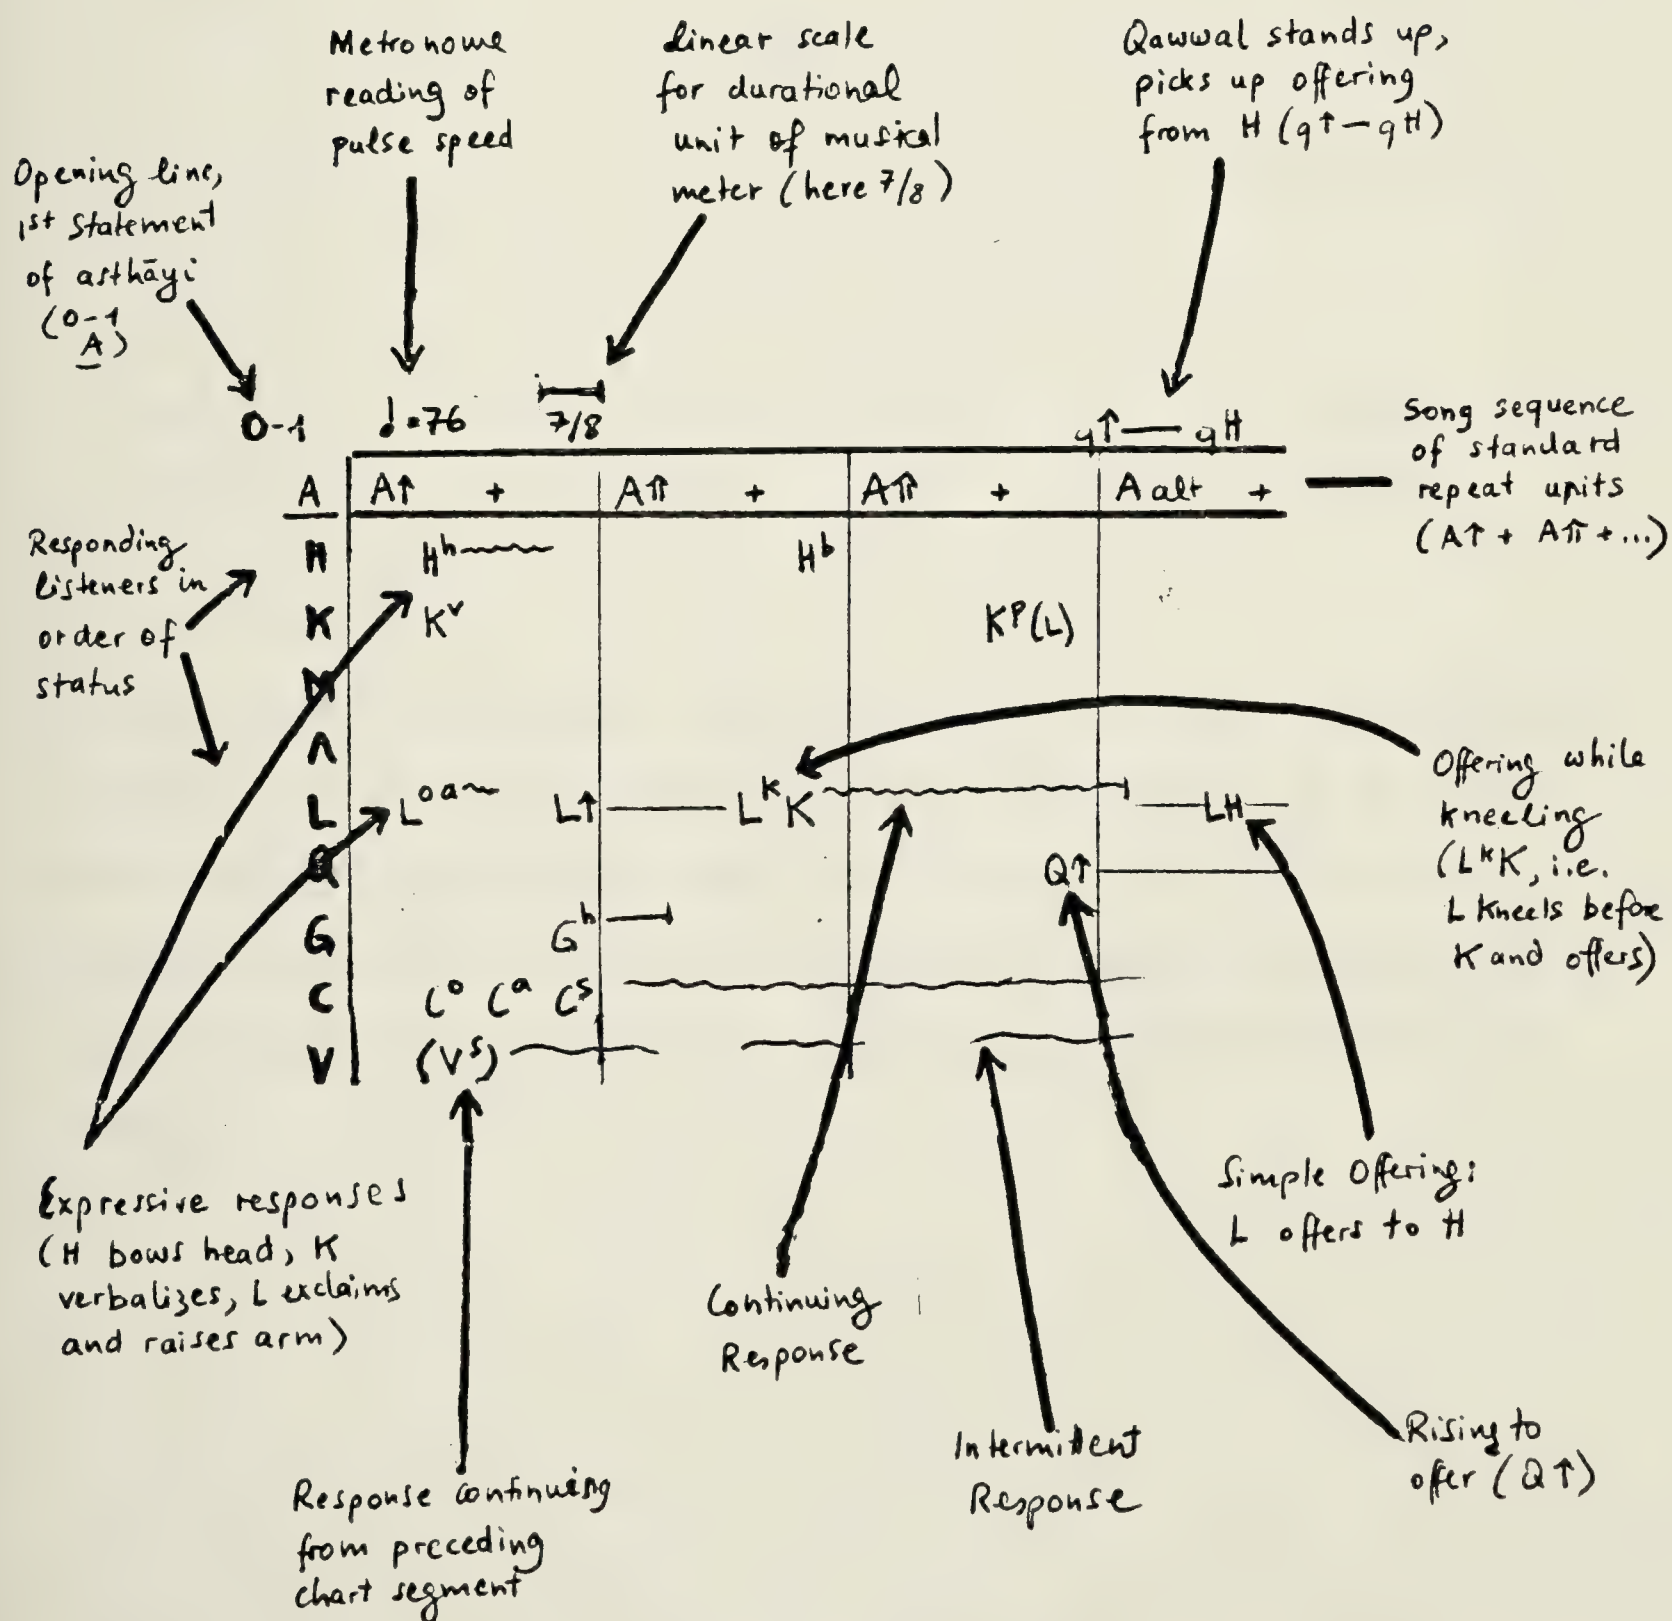 Metronome
reading of
pulse speed
Linear scale
for durational
unit of musical
meter (here 7/8)
Qawwal stands up,
picks up offering
from H (q↑—qH)
Opening line,
1st statement
of asthāyi
(0-1
A)
0-1 ♩=76 7/8 q↑— qH
Song sequence
of standard
repeat units
(A↑ + A⇈ + ...)
A A↑ + A⇈ + A⇈ + A alt +
Responding
listeners in
order of
status
H Hʰ Hᵇ
K Kᵛ Kᵖ(L)
M
Λ
L Lᵒᵃ L↑ LᵏK LH
Q Q↑
G Gʰ
C Cᵒ Cᵃ Cˢ
V (Vˢ)
Offering while
kneeling
(LᵏK, i.e.
L kneels before
K and offers)
Expressive responses
(H bows head, K
verbalizes, L exclaims
and raises arm)
Simple Offering:
L offers to H
Continuing
Response
Intermittent
Response
Rising to
offer (Q↑)
Response continuing
from preceding
chart segment